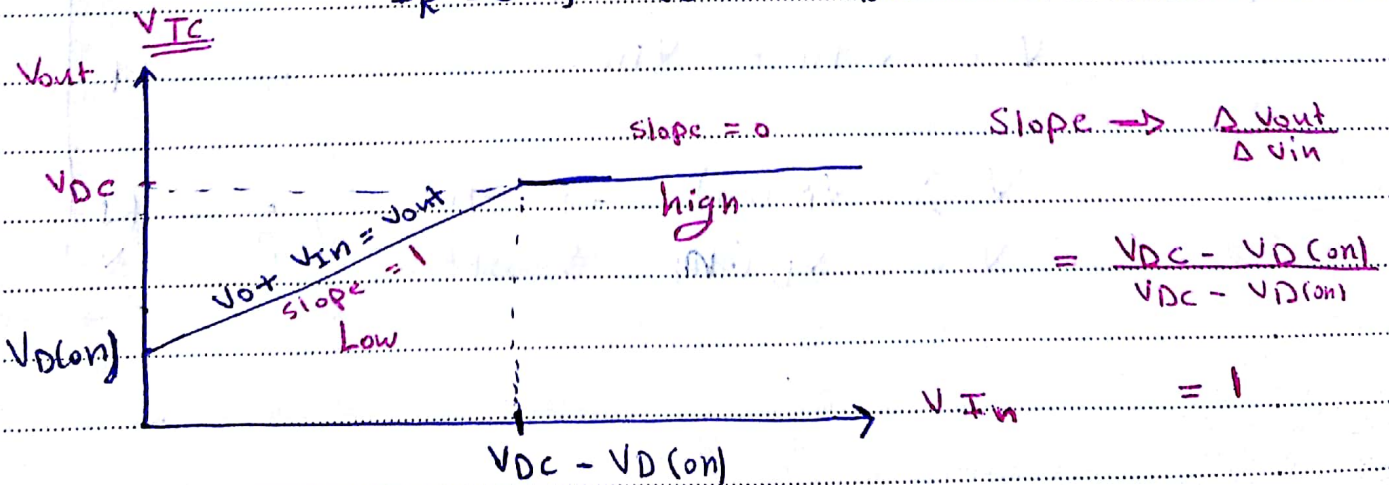 VTC
Vout
slope = 0
Slope → Δ Vout / Δ Vin
VDC
high
VD+ VIn = Vout
slope = 1
= VDC - VD(on) / VDC - VD(on)
Low
VD(on)
VIn
= 1
VDC - VD(on)